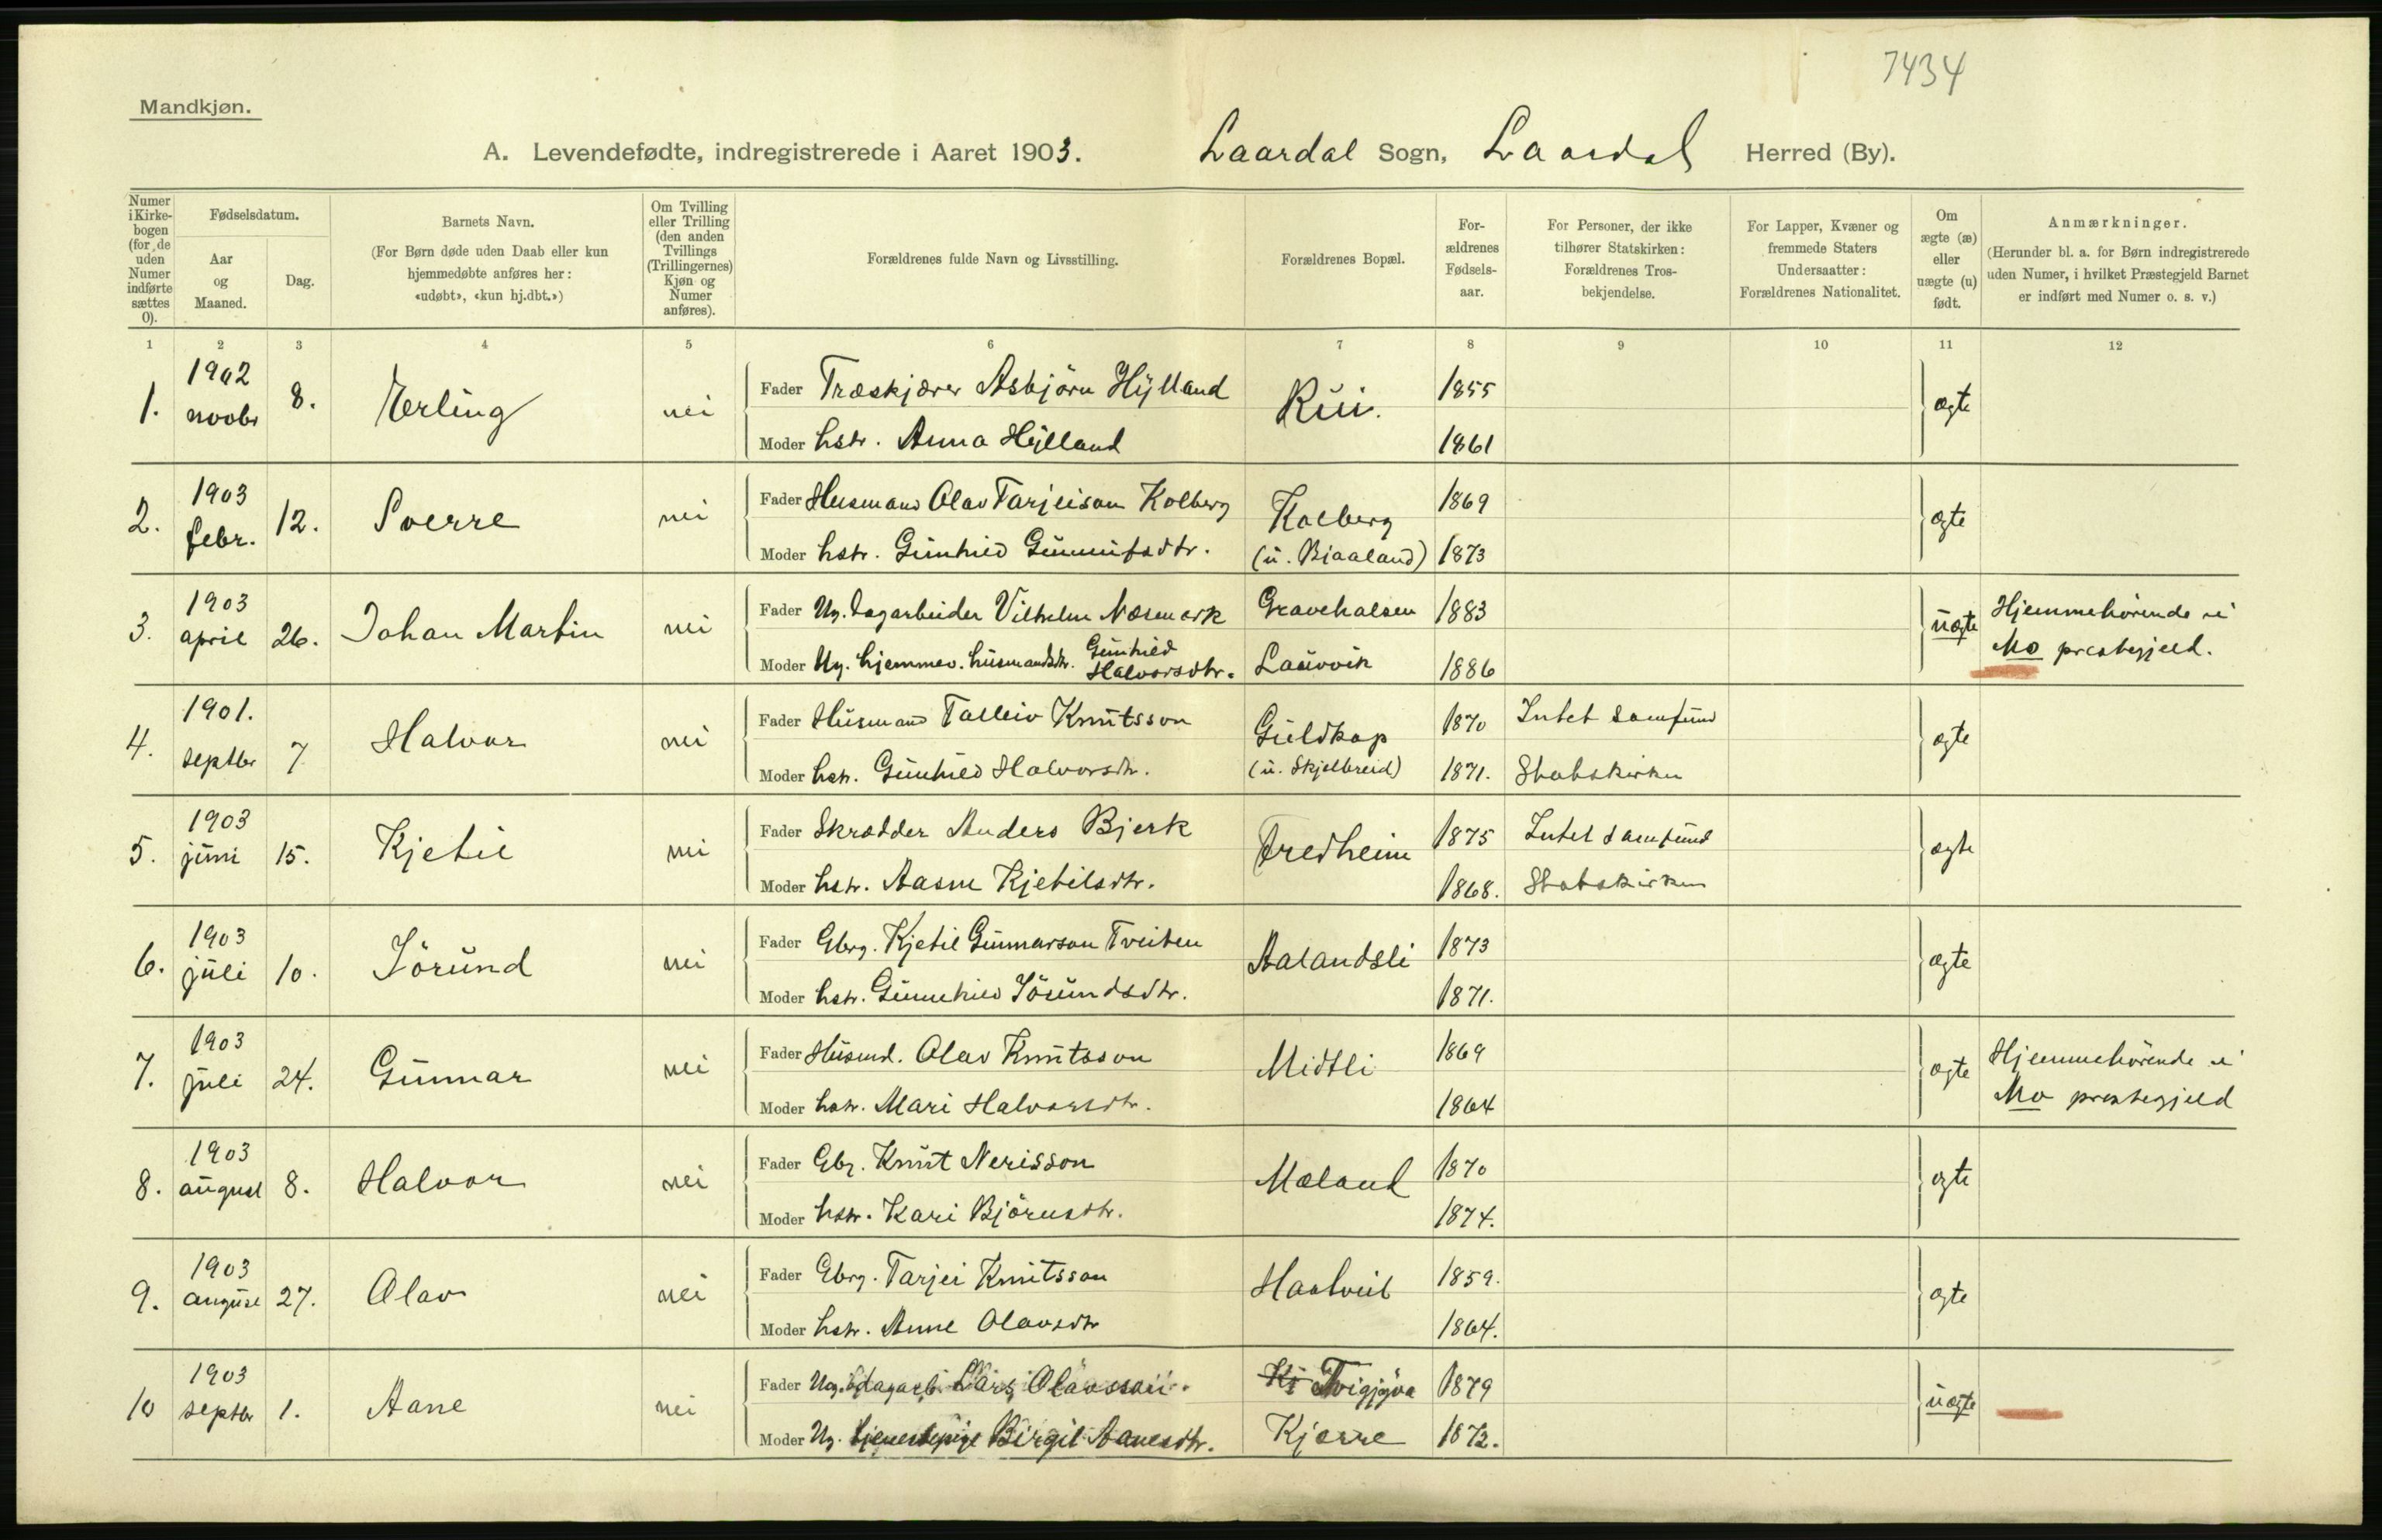 7434
Mandkjøn.
A. Levendefødte, indregistrerede i Aaret 1903. Laardal Sogn, Laardal Herred (By).
Numer i Kirkebogen (for de uden Numer indførte sættes 0).
Fødselsdatum.
Aar og Maaned.
Dag.
Barnets Navn.
(For Børn døde uden Daab eller kun hjemmedøbte anføres her: «udøbt», «kun hj.dbt.»)
Om Tvilling eller Trilling (den anden Tvillings (Trillingernes) Kjøn og Numer anføres).
Forældrenes fulde Navn og Livsstilling.
Forældrenes Bopæl.
Forældrenes Fødselsaar.
For Personer, der ikke tilhører Statskirken: Forældrenes Trosbekjendelse.
For Lapper, Kvæner og fremmede Staters Undersaatter: Forældrenes Nationalitet.
Om ægte (æ) eller uægte (u) født.
Anmærkninger.
(Herunder bl. a. for Børn indregistrerede uden Numer, i hvilket Præstegjeld Barnet er indført med Numer o. s. v.)
1 2 3 4 5 6 7 8 9 10 11 12
1. 1902 novbr 8. Erling nei Fader Træskjærer Asbjörn Hylland Rui. 1855 ægte
Moder hstr. Anna Hylland 1861
2. 1903 febr. 12. Sverre nei Fader Husmand Olav Tarjeison Kolberg Kolberg 1869 ægte
Moder hstr. Gunhild Gunnufsdtr. (u. Bjaaland) 1873
3. 1903 april 26. Johan Martin nei Fader Ug. dagarbeider Vilhelm Næsmark Gravehalsen 1883 uægte Hjemmehörende i
Moder Ug. hjemmev. husmandsdtr. Gunhild Halvorsdtr. Lauvvik 1886 Mo prestegjeld.
4. 1901. septbr 7 Halvor nei Fader Husmand Talleiv Knutsson Guldkop 1870 Intet samfund ægte
Moder hstr. Gunhild Halvorsdtr. (u. Skjelbreid) 1871. Statskirken
5. 1903 juni 15. Kjetil nei Fader Skrædder Anders Bjerk Fredheim 1875 Intet samfund ægte
Moder hstr. Aasne Kjetilsdtr. 1868. Statskirken
6. 1903 juli 10. Jörund nei Fader Gbrg. Kjetil Gunnarson Tveiten Aalandsli 1873 ægte
Moder hstr. Gunnhild Jörundsdtr. 1871.
7. 1903 juli 24. Gunnar nei Fader Husmd. Olav Knutsson Midtli 1869 ægte Hjemmehörende i
Moder hstr. Mari Halvorsdtr. 1864 Mo prestegjeld
8. 1903 august 8. Halvor nei Fader Gbr. Knut Nerisson Mæland 1870 ægte
Moder hstr. Kari Björnsdtr. 1874.
9. 1903 august 27. Olav nei Fader Gbrg. Tarjei Knutsson Haatveit 1859. ægte
Moder hstr. Anne Olavsdtr 1864.
10 1903 septbr 1. Aane nei Fader Ug. dagarb. Lars Olavsson. 1879 uægte
Moder Ug. tjenestepige Birgit Aanesdtr. Kjærre 1872.